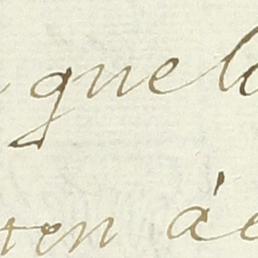 quel
ten à